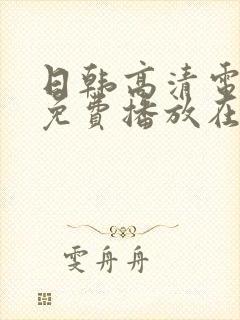 日韩高清電
免費播放在
雯舟舟